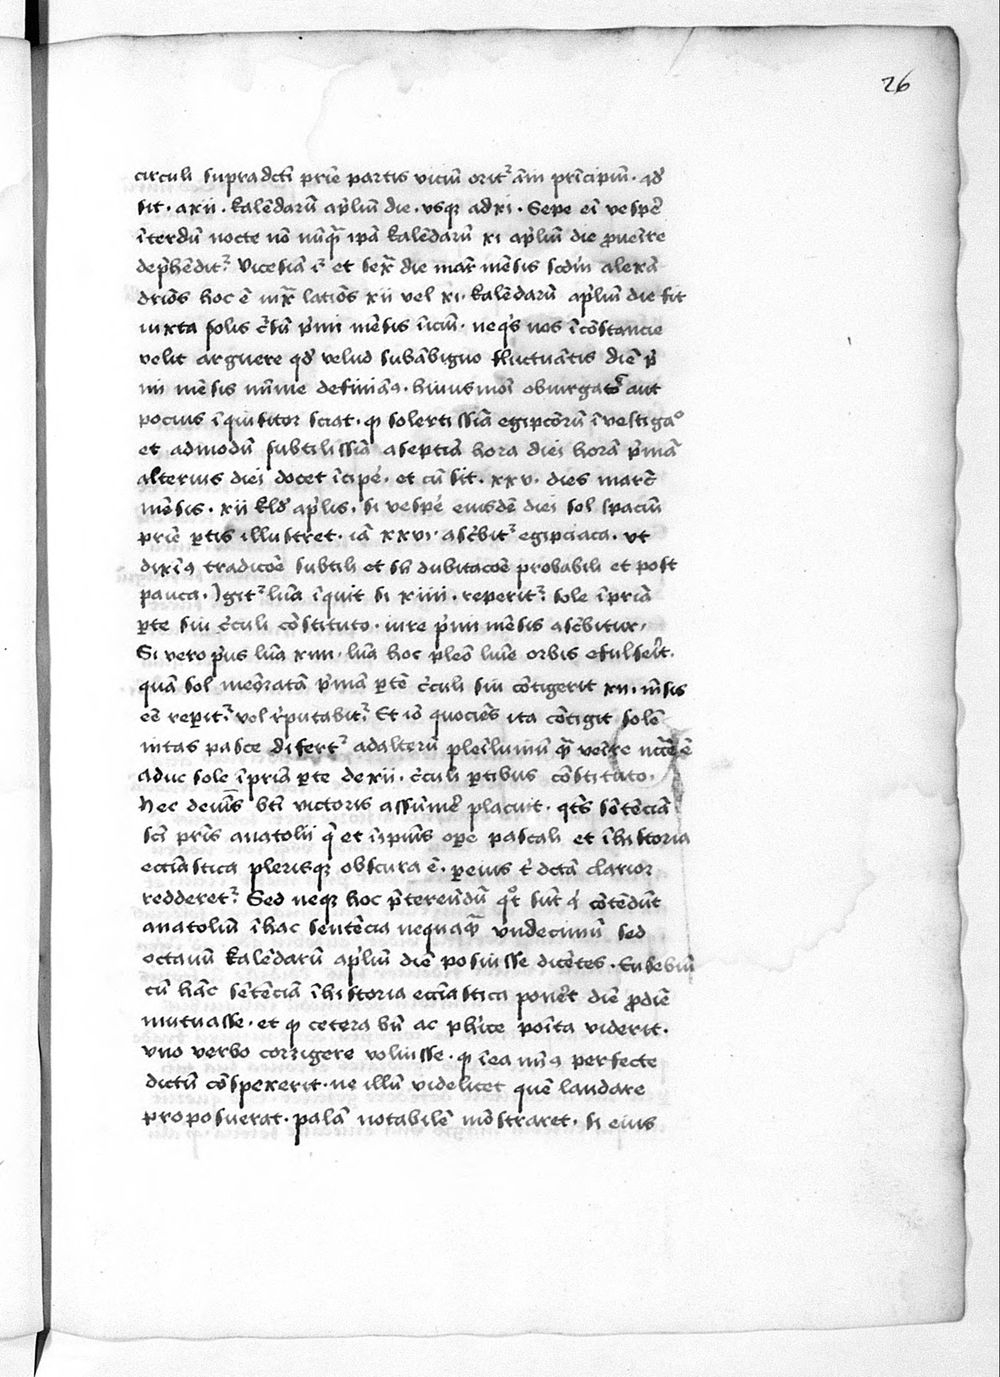 26
circuli supradcti prīe partis viciū orit᷑ aīm prīcipiū · qd̄
sit · a xii · kalēdarū apliū die · vsqꝫ ad xi · Sepe eī vesper̄
īterdū nocte nō nūqͣ ipā kalēdarū xi apliū die ꝓueīre
dep̄hēdit᷑ · vicesiā et sex̄ die mar̄ mēsis scdm alexā
driōs hoc ē iux̄ latiōs xii vel xi · kalēdarū apliū die sit
iuxta solis c̄sū p̄mi mēsis īiciū · neqꝫ nos īcōstancie
velit arguere qd̄ velud sub ābiguo fluctuātis diē p̄
mi mēsis mīme definiāꝰ · huiusmōi obiurgator̄ aut
pocius īquisitor sciat · ꝙ solertissiā egipcōrū īvestigaͦ
et admodū subtilissiā a septiā hora diei horā p̄mā
alterius diei docet īcipē · et cū sit · xxv · dies marc̄
mēsis · xii kld̄ aplis · si vespē eiusdē diei sol spaciū
prīe ꝑtis illustret · iā xxvi · asc̄bit᷑ egipciaca · vt
dixīꝰ tradicōe subtili et sn̄ dubitacōe probabili et post
pauca · Igit᷑ luā īquit si xiiii · reperit᷑ sole ī priā
ꝑte sui c̄culi cōstituto · iure p̄mi mēsis asc̄bitur ·
Si vero p̄us luā xiiii · luā hoc pleō luīe orbis efulserīt ·
quā sol meōratā p̄mā ꝑtē c̄culi sui cōtigerit xii · mēsis
eē reperit᷑ vel rēputabit᷑ · Et iō quociēs ita cōtigit solē
nitas pasce difert᷑ ad alterū pleīluniū qͣ veīre nc̄cē ē
aduc sole ī priā ꝑte de xii · c̄culi ꝑtibus cōstituto ·
Hec de btī victoris assūmer̄ placuit · qt̄s sētēciā
scī prīs anatolii q̄ et ī ipiūs oꝑe pascali et ī historia
ecciastica plerisqꝫ obscura ē · ꝑ eius dctā clarior
redderet᷑ · Sed neqꝫ hoc p̄tereūdū qͦt sūt q̄ cōtēdūt
anatoliū ī hac sentēcia nequaqͣ vndecimū sed
octauū kalēdarū apliū diē posuisse dicētes · Eusebiū
cū hāc sētēciā ī historia ecciastica ponēt diē ꝓdiē
mutuasse · et ꝙ cetera bn̄ ac phīce poīta viderit ·
vno verbo corrigere voluisse · ꝙ ī ea miꝰ perfecte
dictū cōspexerit · ne illū videlicet quē laudare
proposuerat · palā notabilē mōstraret · si eius